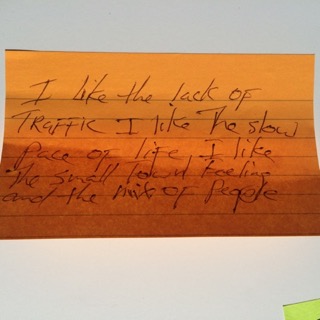 I like the lack of
TRAFFIC I like The slow
pace of life, I like
The small Town Feeling
and the mix of People